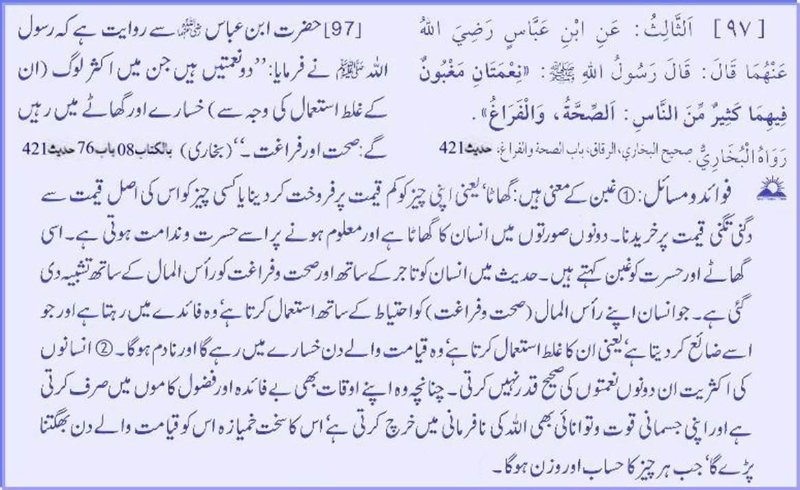 [٩٧] اَلثَّالِثُ: عَنِ ابْنِ عَبَّاسٍ رَضِيَ اللهُ
عَنْهُمَا قَالَ: قَالَ رَسُولُ اللهِ ﷺ: «نِعْمَتَانِ مَغْبُونٌ
فِيهِمَا كَثِيرٌ مِّنَ النَّاسِ: اَلصِّحَّةُ، وَالْفَرَاغُ».
رَوَاهُ الْبُخَارِيُّ: صحيح البخاري، الرقاق، باب الصحة والفراغ، حدیث421
[97] حضرت ابن عباس ؓ سے روایت ہے کہ رسول
اللہ ﷺ نے فرمایا: ’’دو نعمتیں ہیں جن میں اکثر لوگ (ان
کے غلط استعمال کی وجہ سے) خسارے اور گھاٹے میں رہیں
گے: صحت اور فراغت۔‘‘ (بخاری) بالکتاب08 باب76 حدیث421
فوائد و مسائل: ① غبن کے معنی ہیں: گھاٹا، یعنی اپنی چیز کو کم قیمت پر فروخت کر دینا یا کسی چیز کو اس کی اصل قیمت سے
دگنی تگنی قیمت پر خریدنا۔ دونوں صورتوں میں انسان کا گھاٹا ہے اور معلوم ہونے پر اسے حسرت و ندامت ہوتی ہے۔ اسی
گھاٹے اور حسرت کو غبن کہتے ہیں۔ حدیث میں انسان کو تاجر کے ساتھ اور صحت و فراغت کو رأس المال کے ساتھ تشبیہ دی
گئی ہے۔ جو انسان اپنے رأس المال (صحت و فراغت) کو احتیاط کے ساتھ استعمال کرتا ہے، وہ فائدے میں رہتا ہے اور جو
اسے ضائع کر دیتا ہے، یعنی ان کا غلط استعمال کرتا ہے، وہ قیامت والے دن خسارے میں رہے گا اور نادم ہوگا۔ ② انسانوں
کی اکثریت ان دونوں نعمتوں کی صحیح قدر نہیں کرتی۔ چنانچہ وہ اپنے اوقات بھی بے فائدہ اور فضول کاموں میں صرف کرتی
ہے اور اپنی جسمانی قوت و توانائی بھی اللہ کی نافرمانی میں خرچ کرتی ہے، اس کا سخت خمیازہ اس کو قیامت والے دن بھگتنا
پڑے گا، جب ہر چیز کا حساب اور وزن ہوگا۔